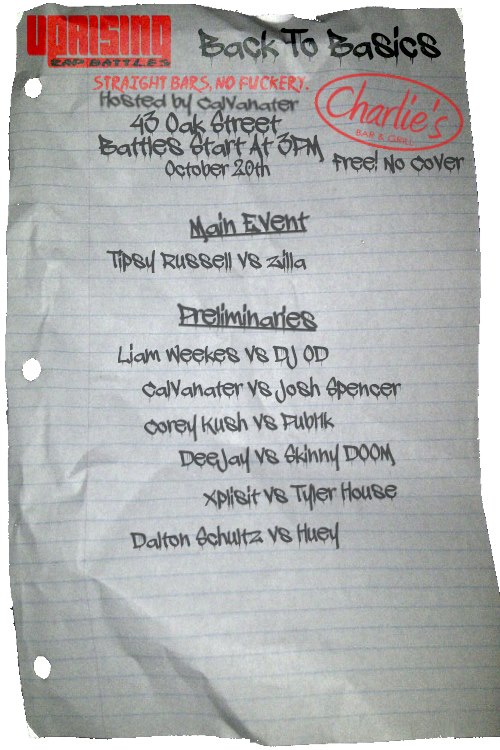 UPRISING
RAP BATTLES
Back To Basics
STRAIGHT BARS, NO FUCKERY.
Hosted by Calvanater
Charlie's
BAR & GRILL
43 Oak Street
Battles Start At 3PM
October 20th
Free! No Cover
Main Event
Tipsy Russell vs Zilla
Preliminaries
Liam Weekes vs DJ OD
Calvanater vs Josh Spencer
Corey Kush vs Publik
DeeJay vs Skinny DOOM
Xplisit vs Tyler House
Dalton Schultz vs Huey